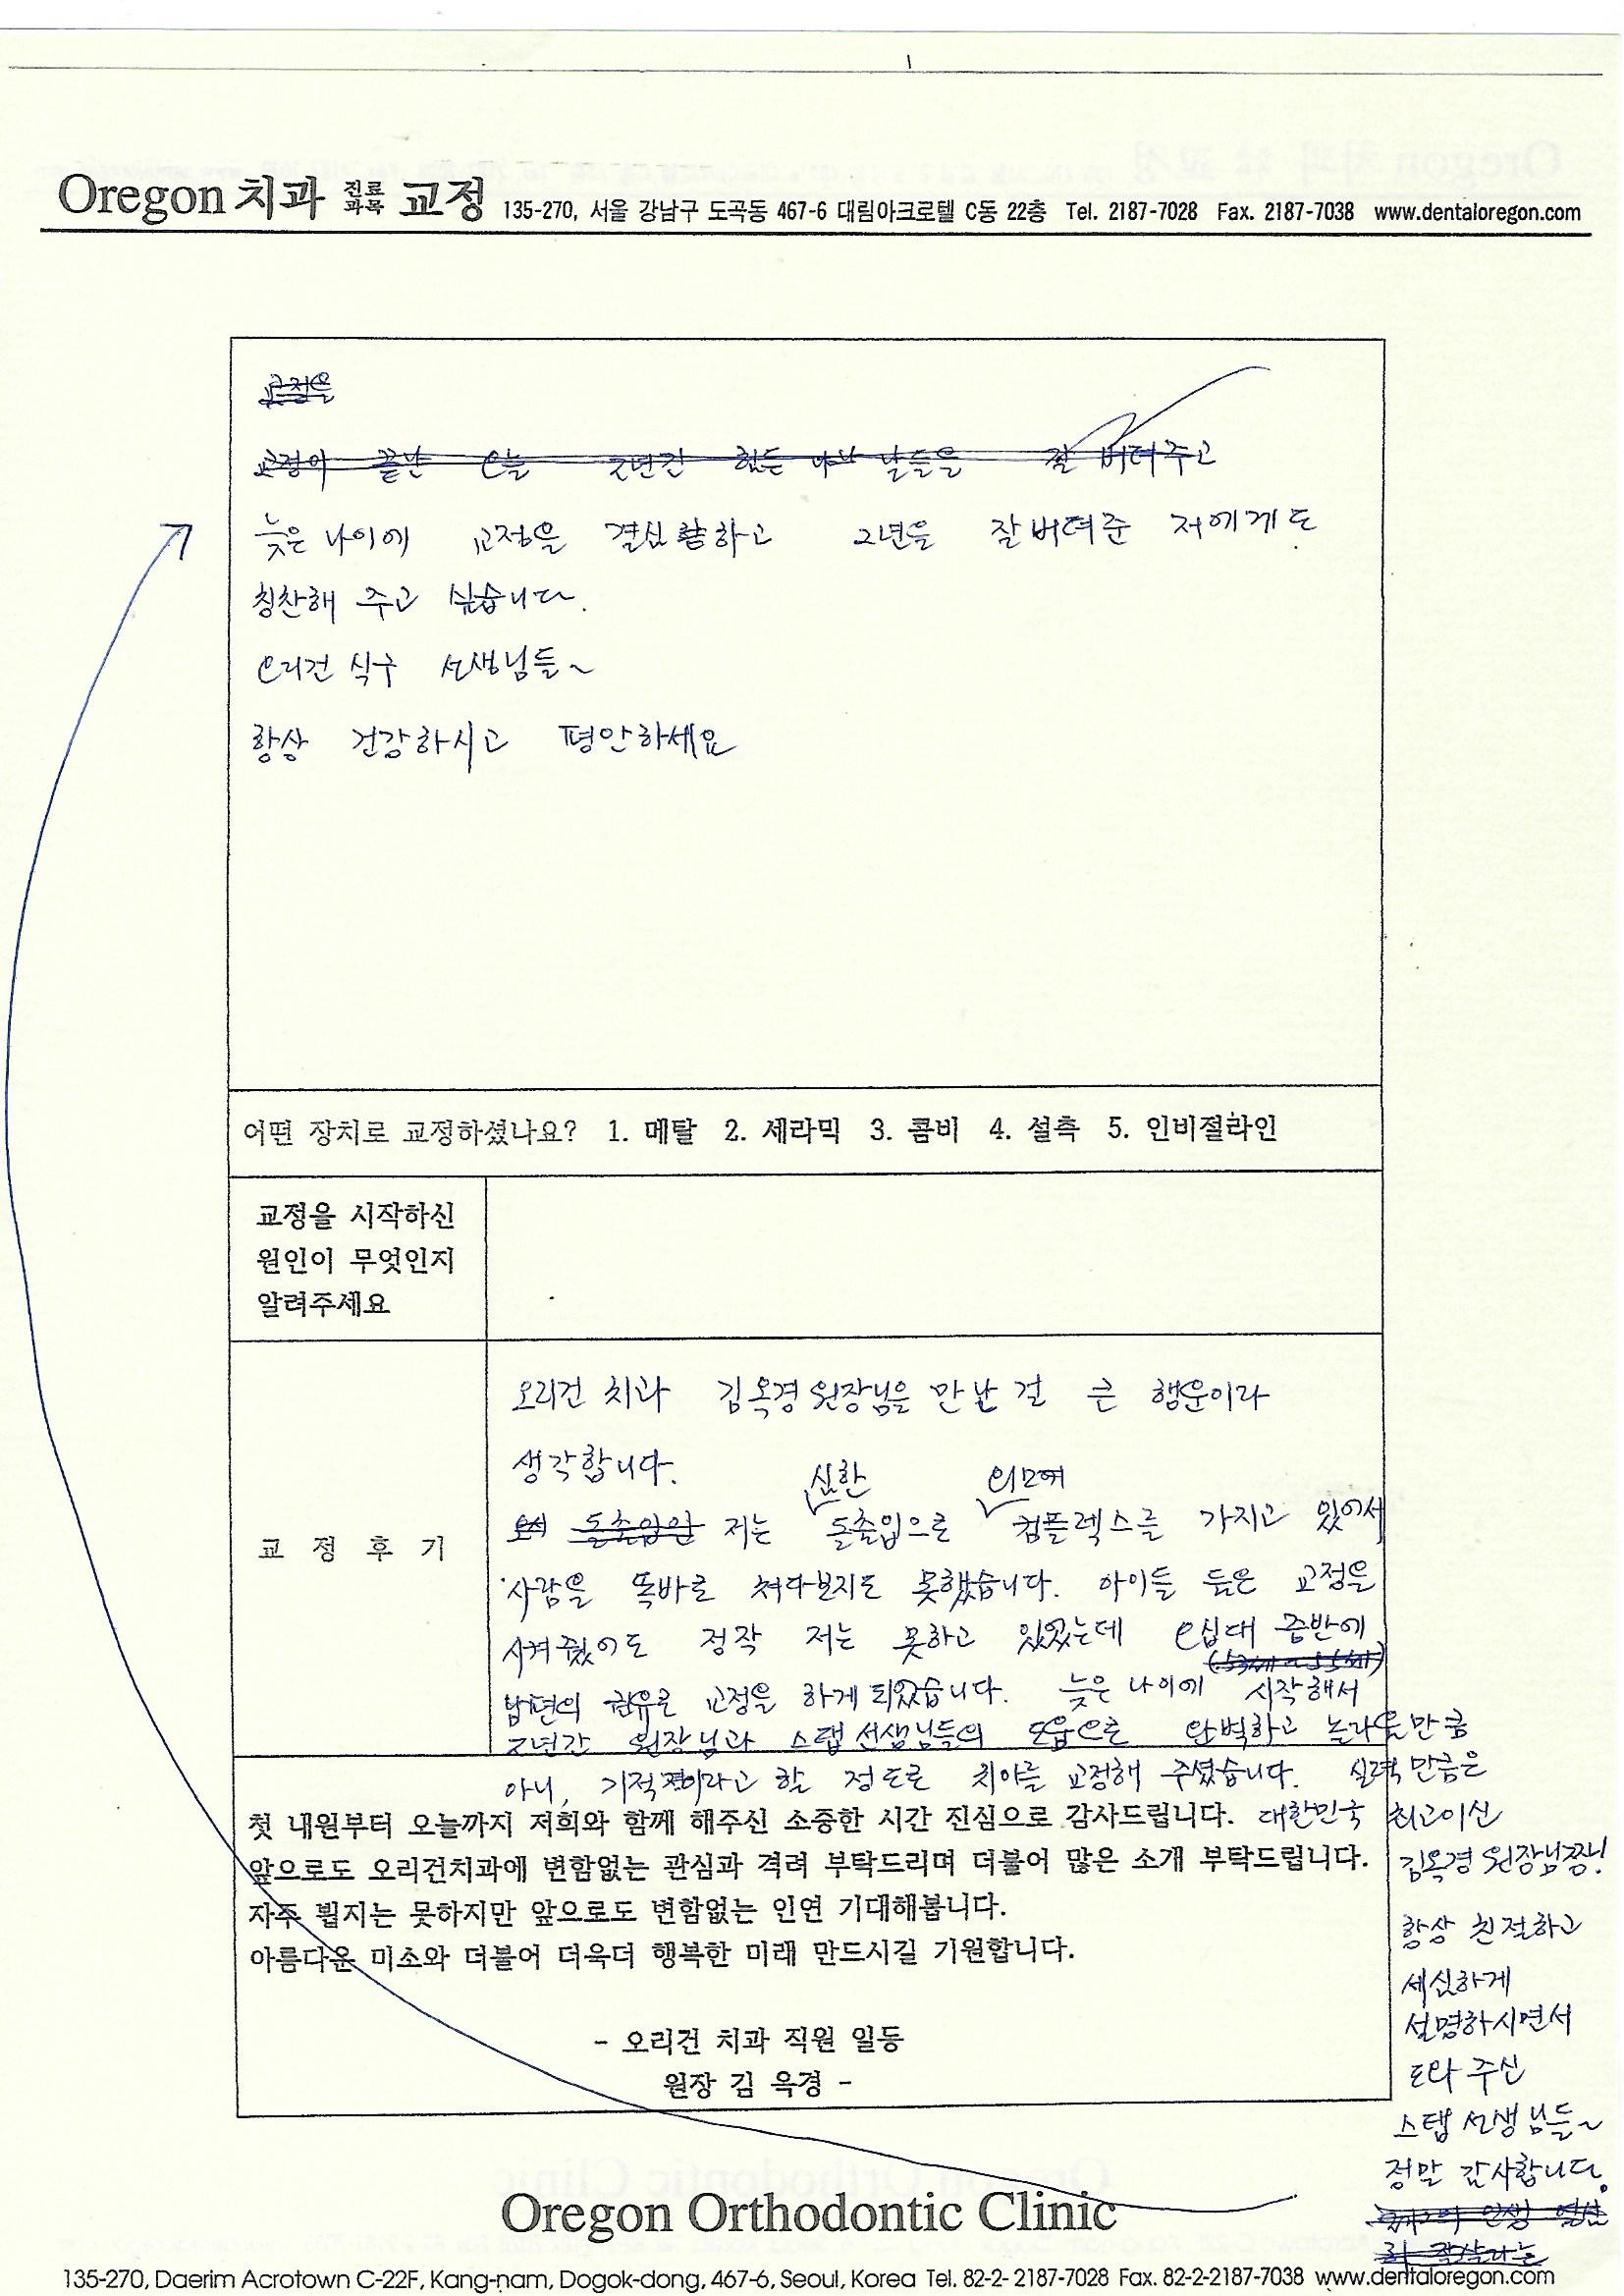 Oregon 치과 진료과목 교정 135-270, 서울 강남구 도곡동 467-6 대림아크로텔 C동 22층 Tel. 2187-7028 Fax. 2187-7038 www.dentaloregon.com
교정을
교정이 끝난 오늘 2년간 힘든 날들을 잘 버텨주고
늦은 나이에 교정을 결심하고 2년을 잘 버텨준 저에게도
칭찬해 주고 싶습니다.
오리건 식구 선생님들~
항상 건강하시고 평안하세요
어떤 장치로 교정하셨나요? 1. 메탈 2. 세라믹 3. 콤비 4. 설측 5. 인비절라인
교정을 시작하신
원인이 무엇인지
알려주세요
교 정 후 기
오리건 치과 김옥경 원장님을 만난 걸 큰 행운이라
생각합니다.
심한 외모에
돌출입인 저는 돌출입으로 컴플렉스를 가지고 있어서
사람을 똑바로 쳐다보지도 못했습니다. 아이들 들은 교정을
시켜줬어도 정작 저는 못하고 있었는데 오십대 중반에
(53세~55세)
남편의 권유로 교정을 하게 되었습니다. 늦은 나이에 시작해서
2년간 원장님과 스탭 선생님들의 도움으로 완벽하고 놀라울만큼
아니, 기적이라고 할 정도로 치아를 교정해 주셨습니다. 실력만큼은
대한민국 최고이신
김옥경 원장님짱!
항상 친절하고
세심하게
설명하시면서
도와 주신
스탭 선생님들~
정말 감사합니다.
첫 내원부터 오늘까지 저희와 함께 해주신 소중한 시간 진심으로 감사드립니다.
앞으로도 오리건치과에 변함없는 관심과 격려 부탁드리며 더불어 많은 소개 부탁드립니다.
자주 뵙지는 못하지만 앞으로도 변함없는 인연 기대해봅니다.
아름다운 미소와 더불어 더욱더 행복한 미래 만드시길 기원합니다.
- 오리건 치과 직원 일동
원장 김 옥경 -
Oregon Orthodontic Clinic
135-270, Daerim Acrotown C-22F, Kang-nam, Dogok-dong, 467-6, Seoul, Korea Tel. 82-2- 2187-7028 Fax. 82-2-2187-7038 www.dentaloregon.com